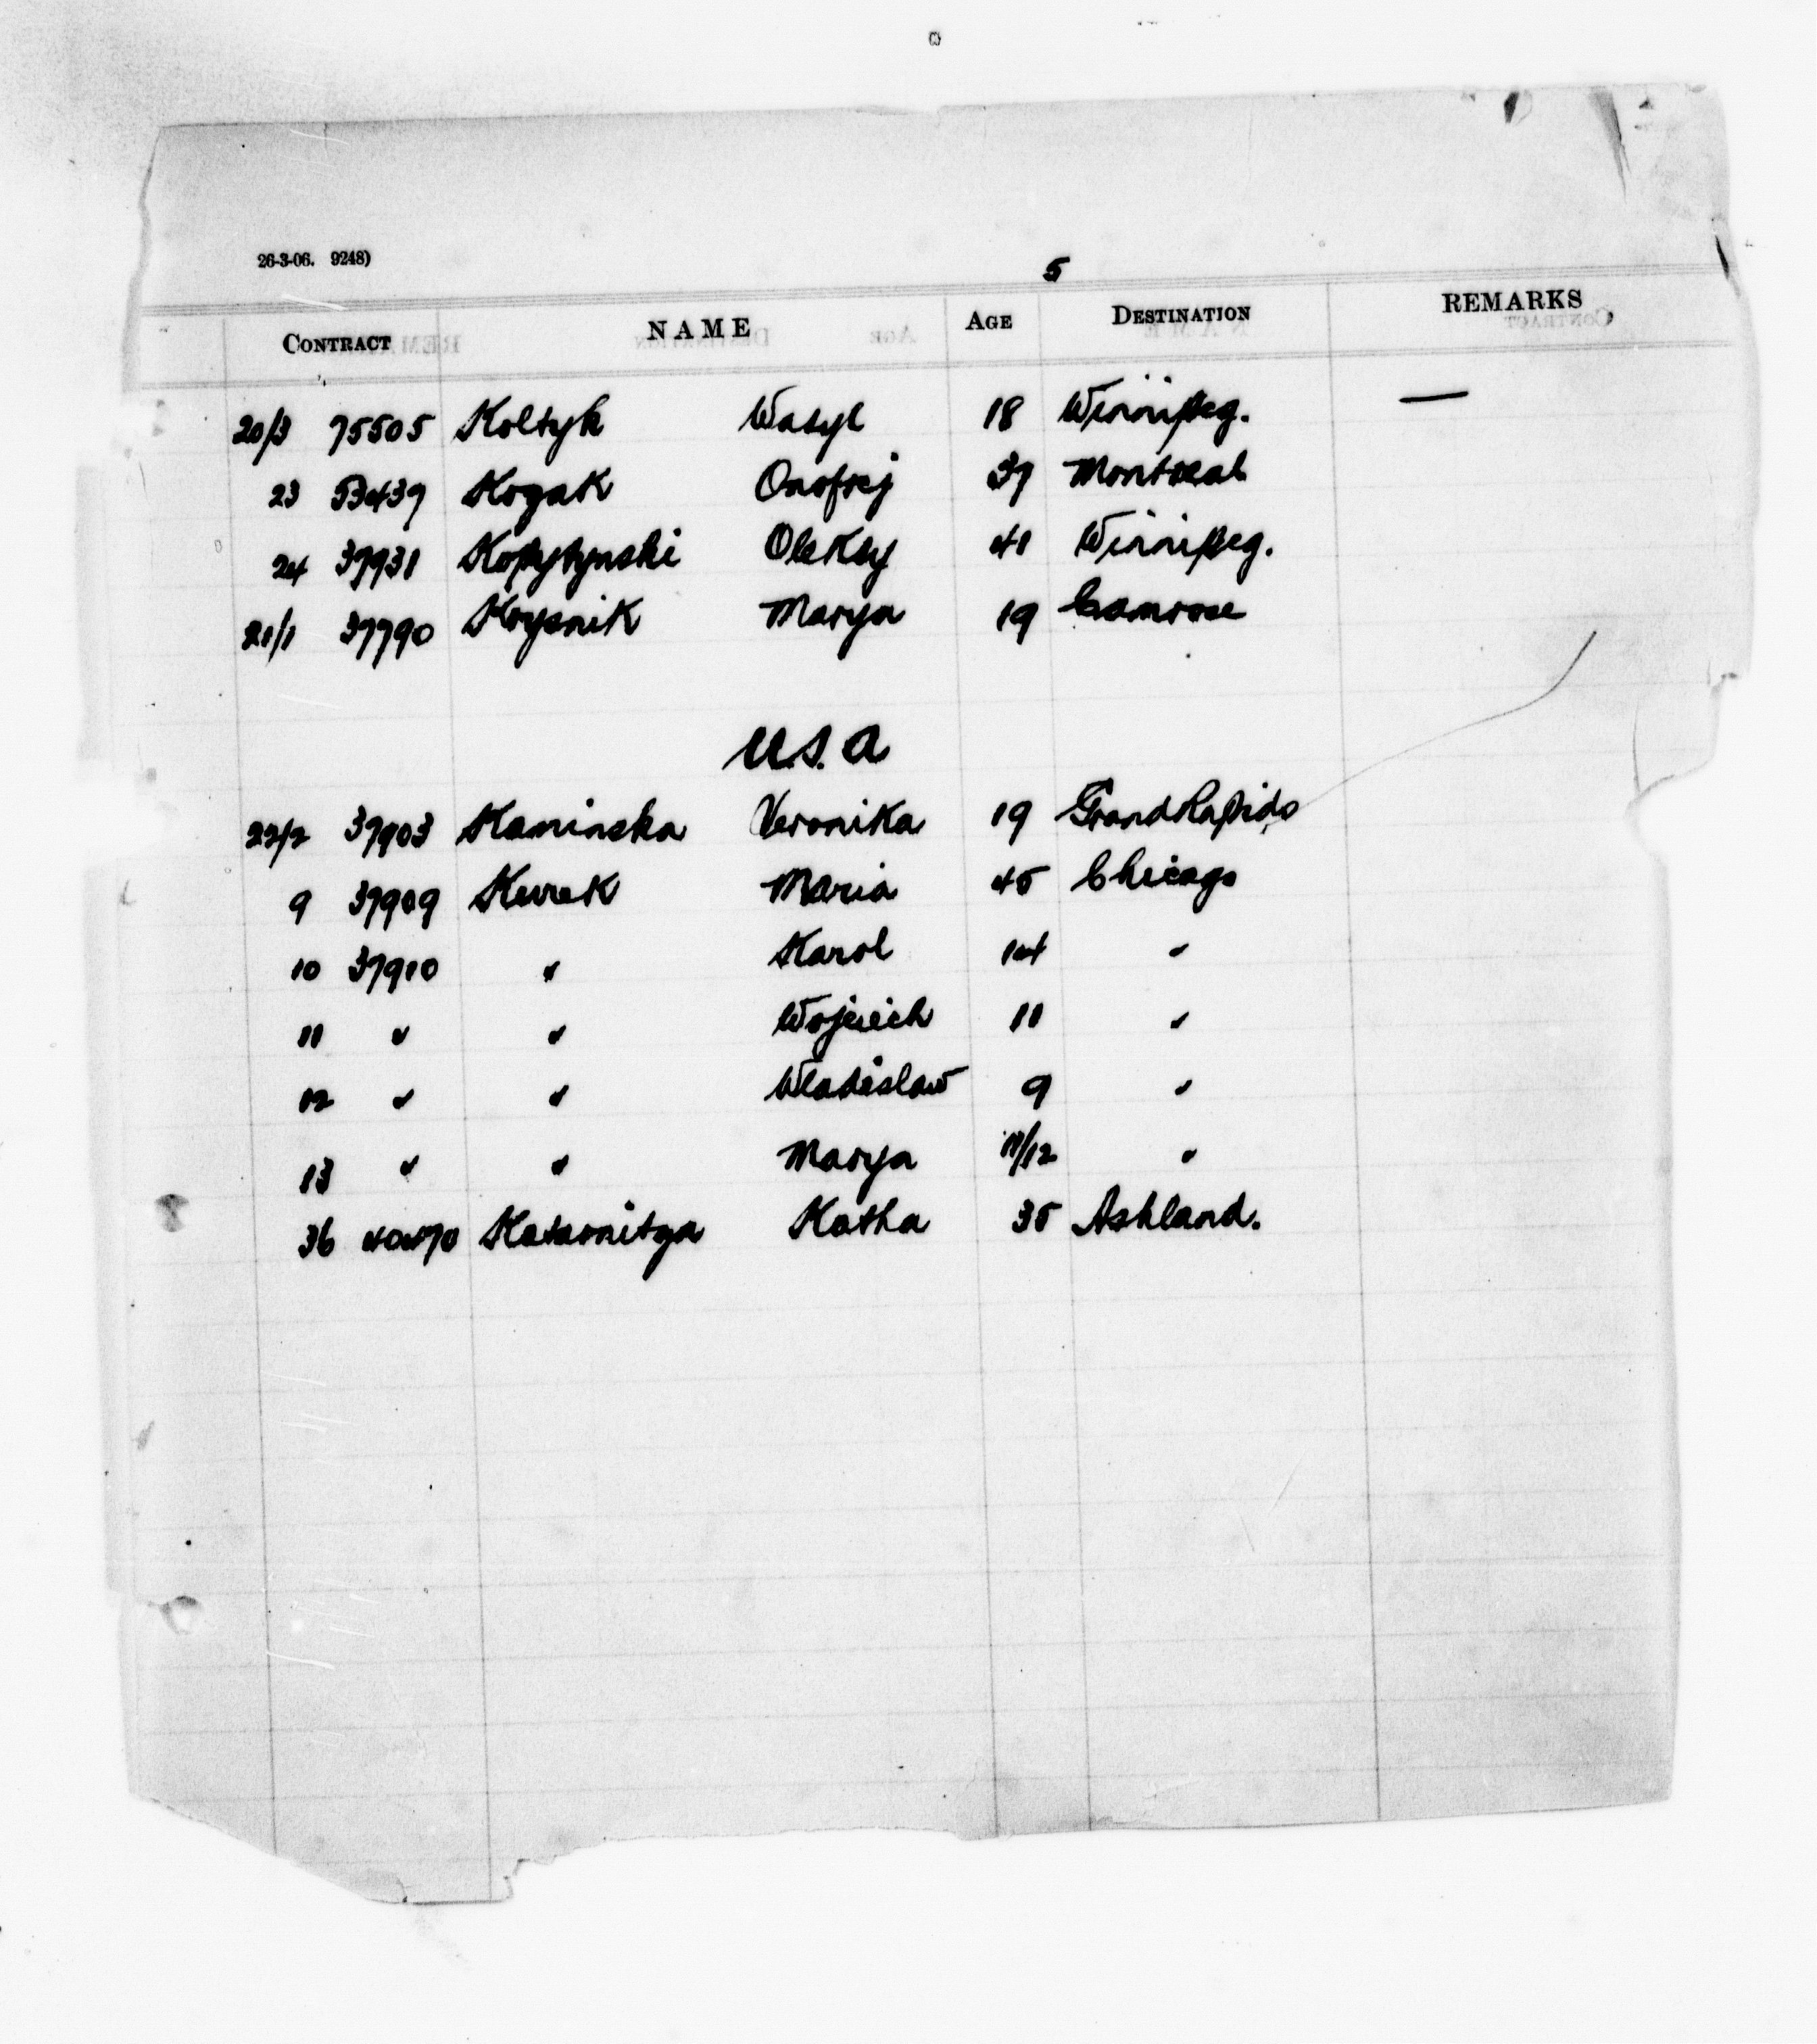 26-3-06. 9248)
5
CONTRACT NAME AGE DESTINATION REMARKS
20/3 75505 Koltyk Wasyl 18 Winnipeg. —
23 53439 Kozak Onofrej 37 Montreal
24 37931 Kopytynski Oleksy 41 Winnipeg.
21/1 37790 Krysnik Marya 19 Camrose
U.S.A
22/2 37903 Kaminska Veronika 19 Grand Rapids
9 37909 Kurek Maria 45 Chicago
10 37910 " Karol 14 "
11 " " Wojciech 11 "
12 " " Wladislaw 9 "
13 " " Marya 11/12 "
36 40470 Katarnitza Katha 35 Ashland.